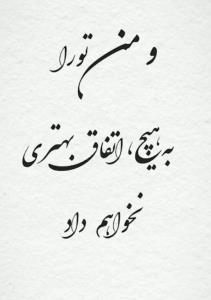 و من تو را
به هیچ، اتفاق بهتری
نخواهم داد